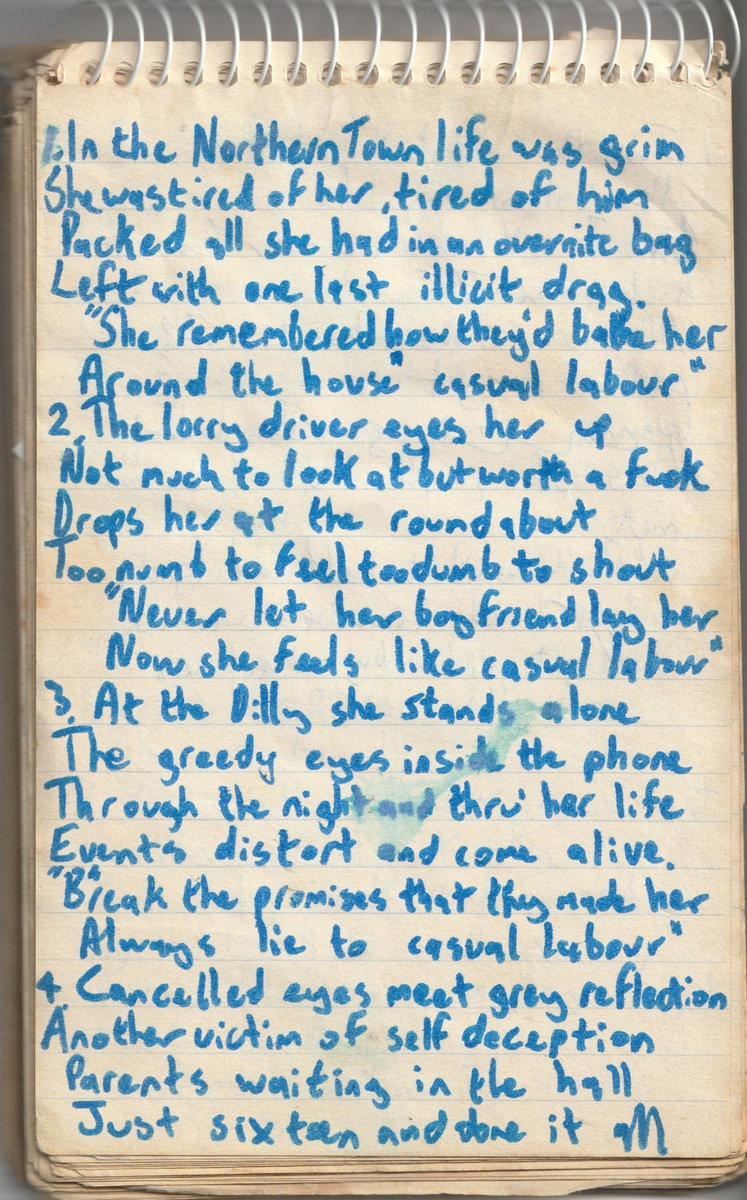 1. In the Northern Town life was grim
She was tired of her, tired of him
Packed all she had in an overnite bag
Left with one last illicit drag.
"She remembered how they'd babe her
Around the house" casual labour"
2. The lorry driver eyes her up
Not much to look at but worth a fuck
Drops her at the roundabout
Too numb to feel too dumb to shout
"Never let her boyfriend lay her
Now she feels like casual labour"
3. At the Dilly she stands alone
The greedy eyes inside the phone
Through the night and thru' her life
Events distort and come alive.
"Break the promises that they made her
Always lie to casual labour"
4. Cancelled eyes meet grey reflection
Another victim of self deception
Parents waiting in the hall
Just sixteen and done it all